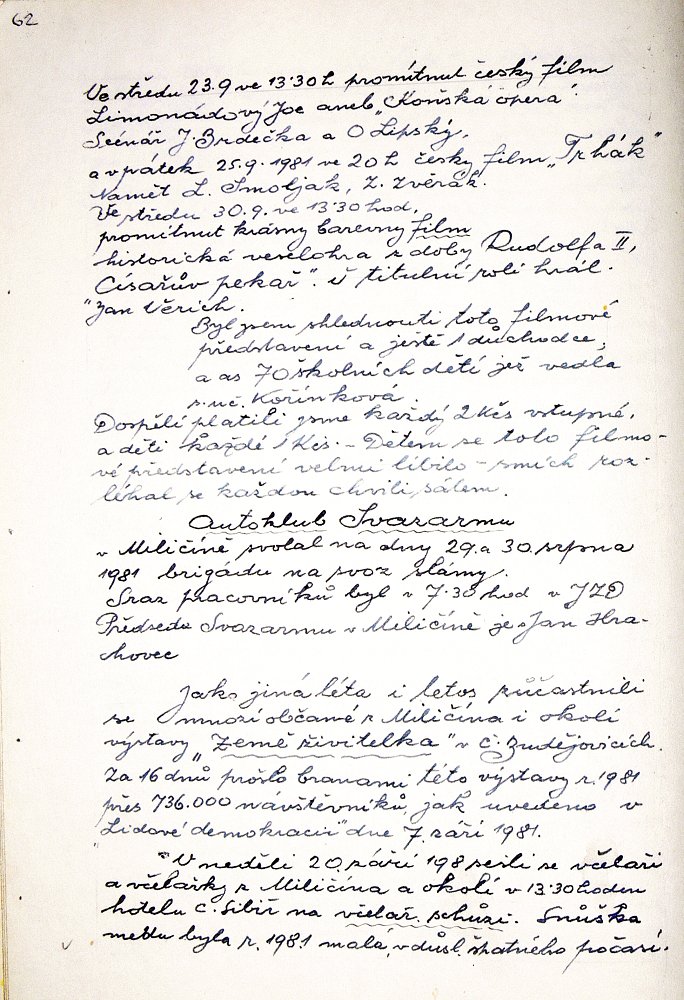 62
Ve středu 23.9 ve 13·30 h promítnut český film
Limonádový Joe aneb „Koňská opera".
Scénář J. Brdečka a O Lipský,
a v pátek 25.9. 1981 ve 20 h český film „Trhák"
Namět L. Smoljak, Z. Zvěrák.
Ve středu 30.9. ve 13·30 hod,
promítnut krásný barevný film
historická veselohra z doby Rudolfa II,
Císařův pekař". V titulní roli hrál.
"Jan Verich.
Byl jsem shlednouti toto filmové
představení a ještě 1 důchodce,
a as 70 školních dětí jež vedla
s. uč. Kořínková.
Dospělí platili jsme každý 2 Kčs vstupné,
a děti každé 1 Kčs. – Dětem se toto filmo-
vé představení velmi líbilo – smích roz-
léhal se každou chvíli, sálem.
Autoklub Svazarmu
v Miličíně svolal na dny 29. a 30. srpna
1981 brigádu na svoz slámy.
Sraz pracovníků byl v 7·30 hod v JZD
Předseda Svazarmu v Miličíně je Jan Hra-
chovec
Jako jiná léta i letos zúčastnili
se mnozí občané z Miličína i okolí
výstavy „Země živitelka" v Č. Budějovicích.
Za 16 dnů prošlo branami této výstavy r. 1981
přes 736.000 návštěvníků, jak uvedeno v
„Lidové demokracii" dne 7. září 1981.
V neděli 20. září 198 sešli se včelaři
a včelařky z Miličína a okolí v 13·30 hod v
hotelu Č. Sibiř na včelař. schůzi. Snůška
medu byla r. 1981 malá, v důsl. špatného počasí.